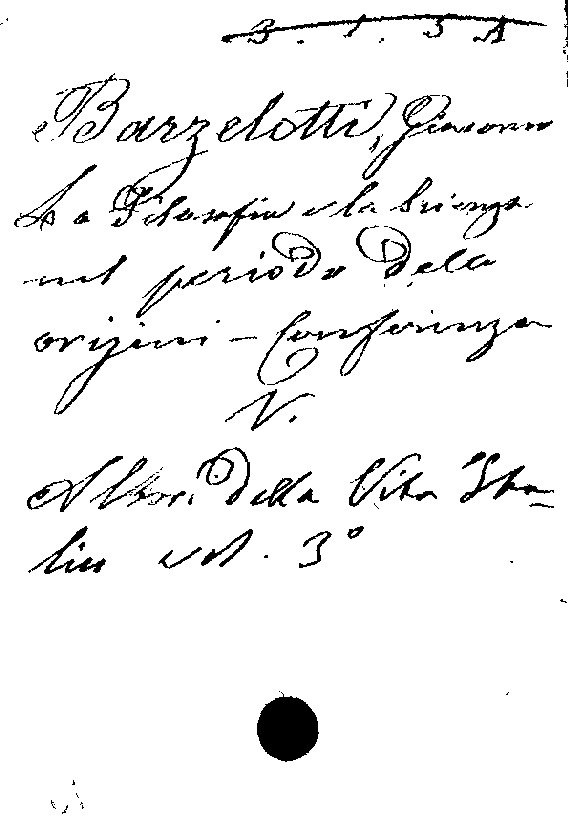 3. 1. 3 A
Barzelotti, Giacomo
La Filosofia e la Scienza
nel periodo delle
origini - Conferenza
V.
Albori della Vita Ita-
lia vol. 3°